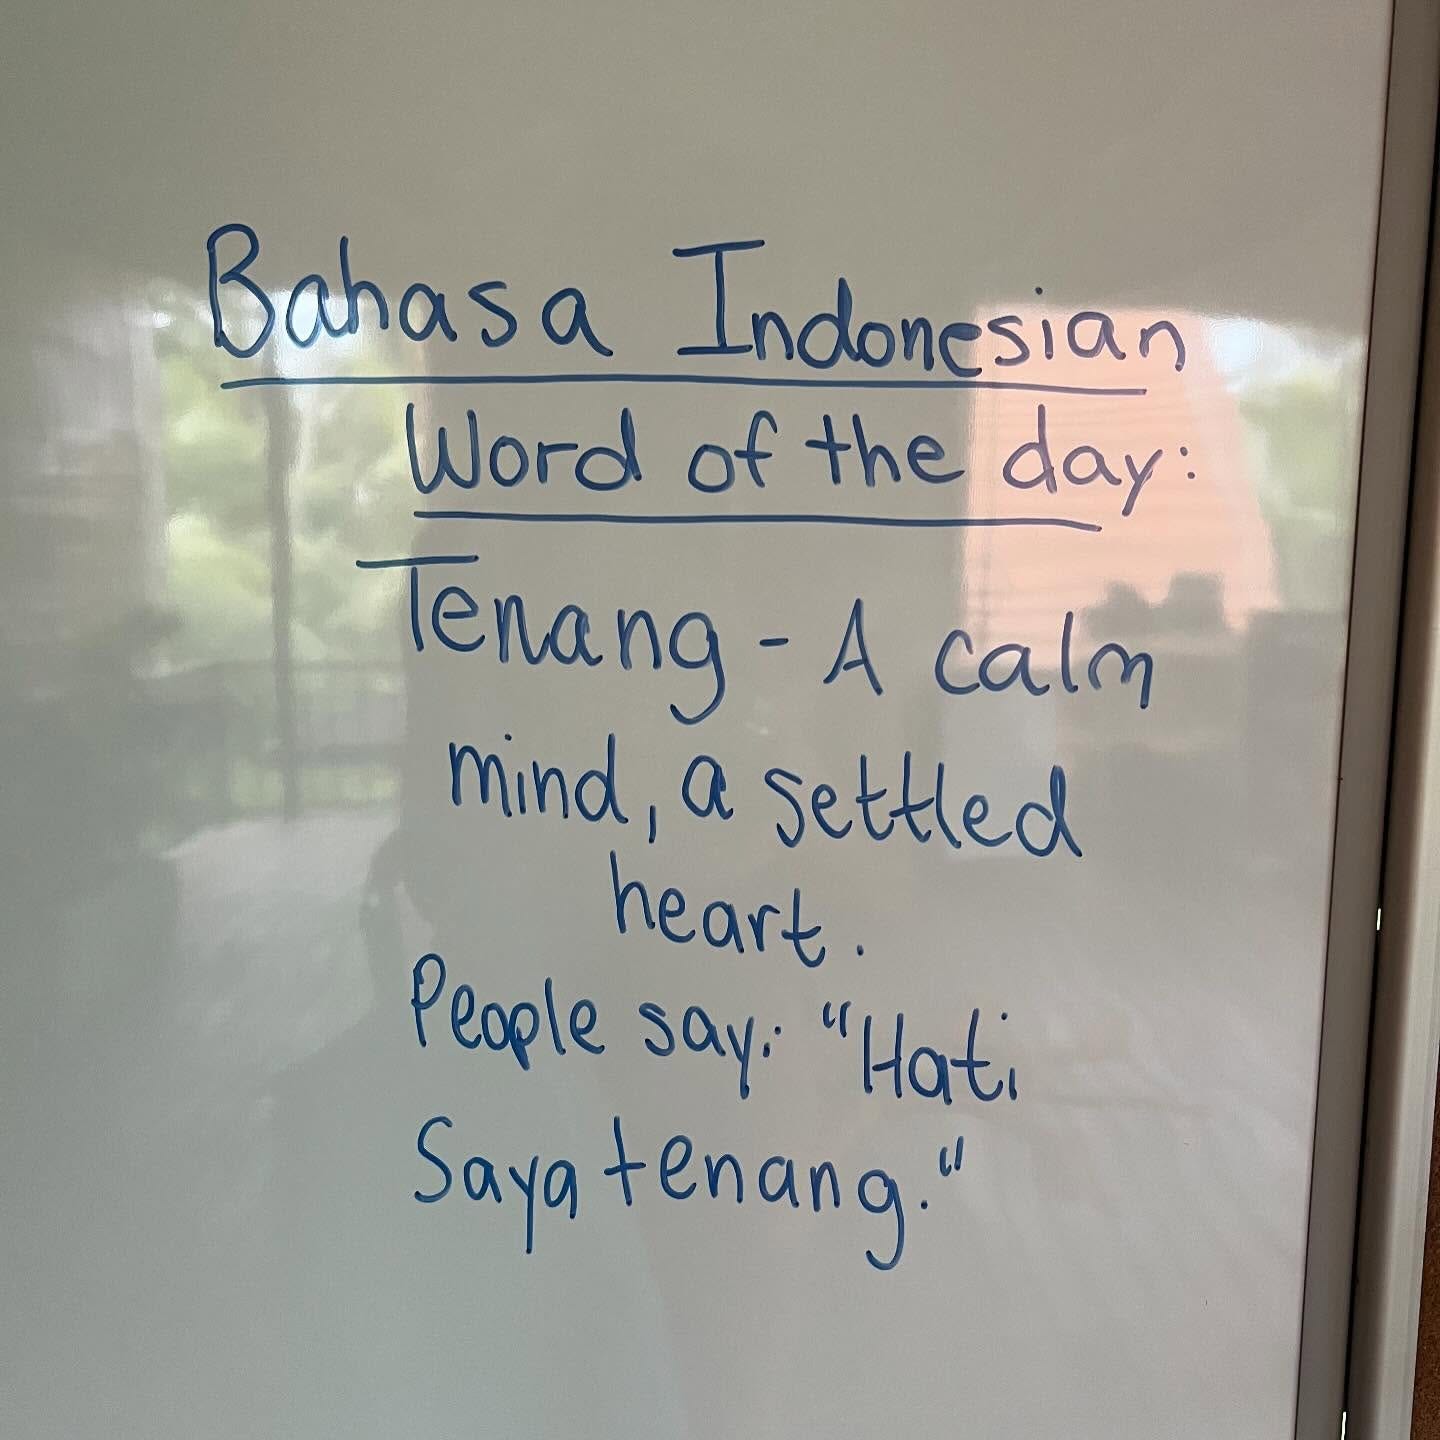 Bahasa Indonesian
Word of the day:
Tenang - A calm
mind, a settled
heart.
People say: "Hati
Saya tenang."